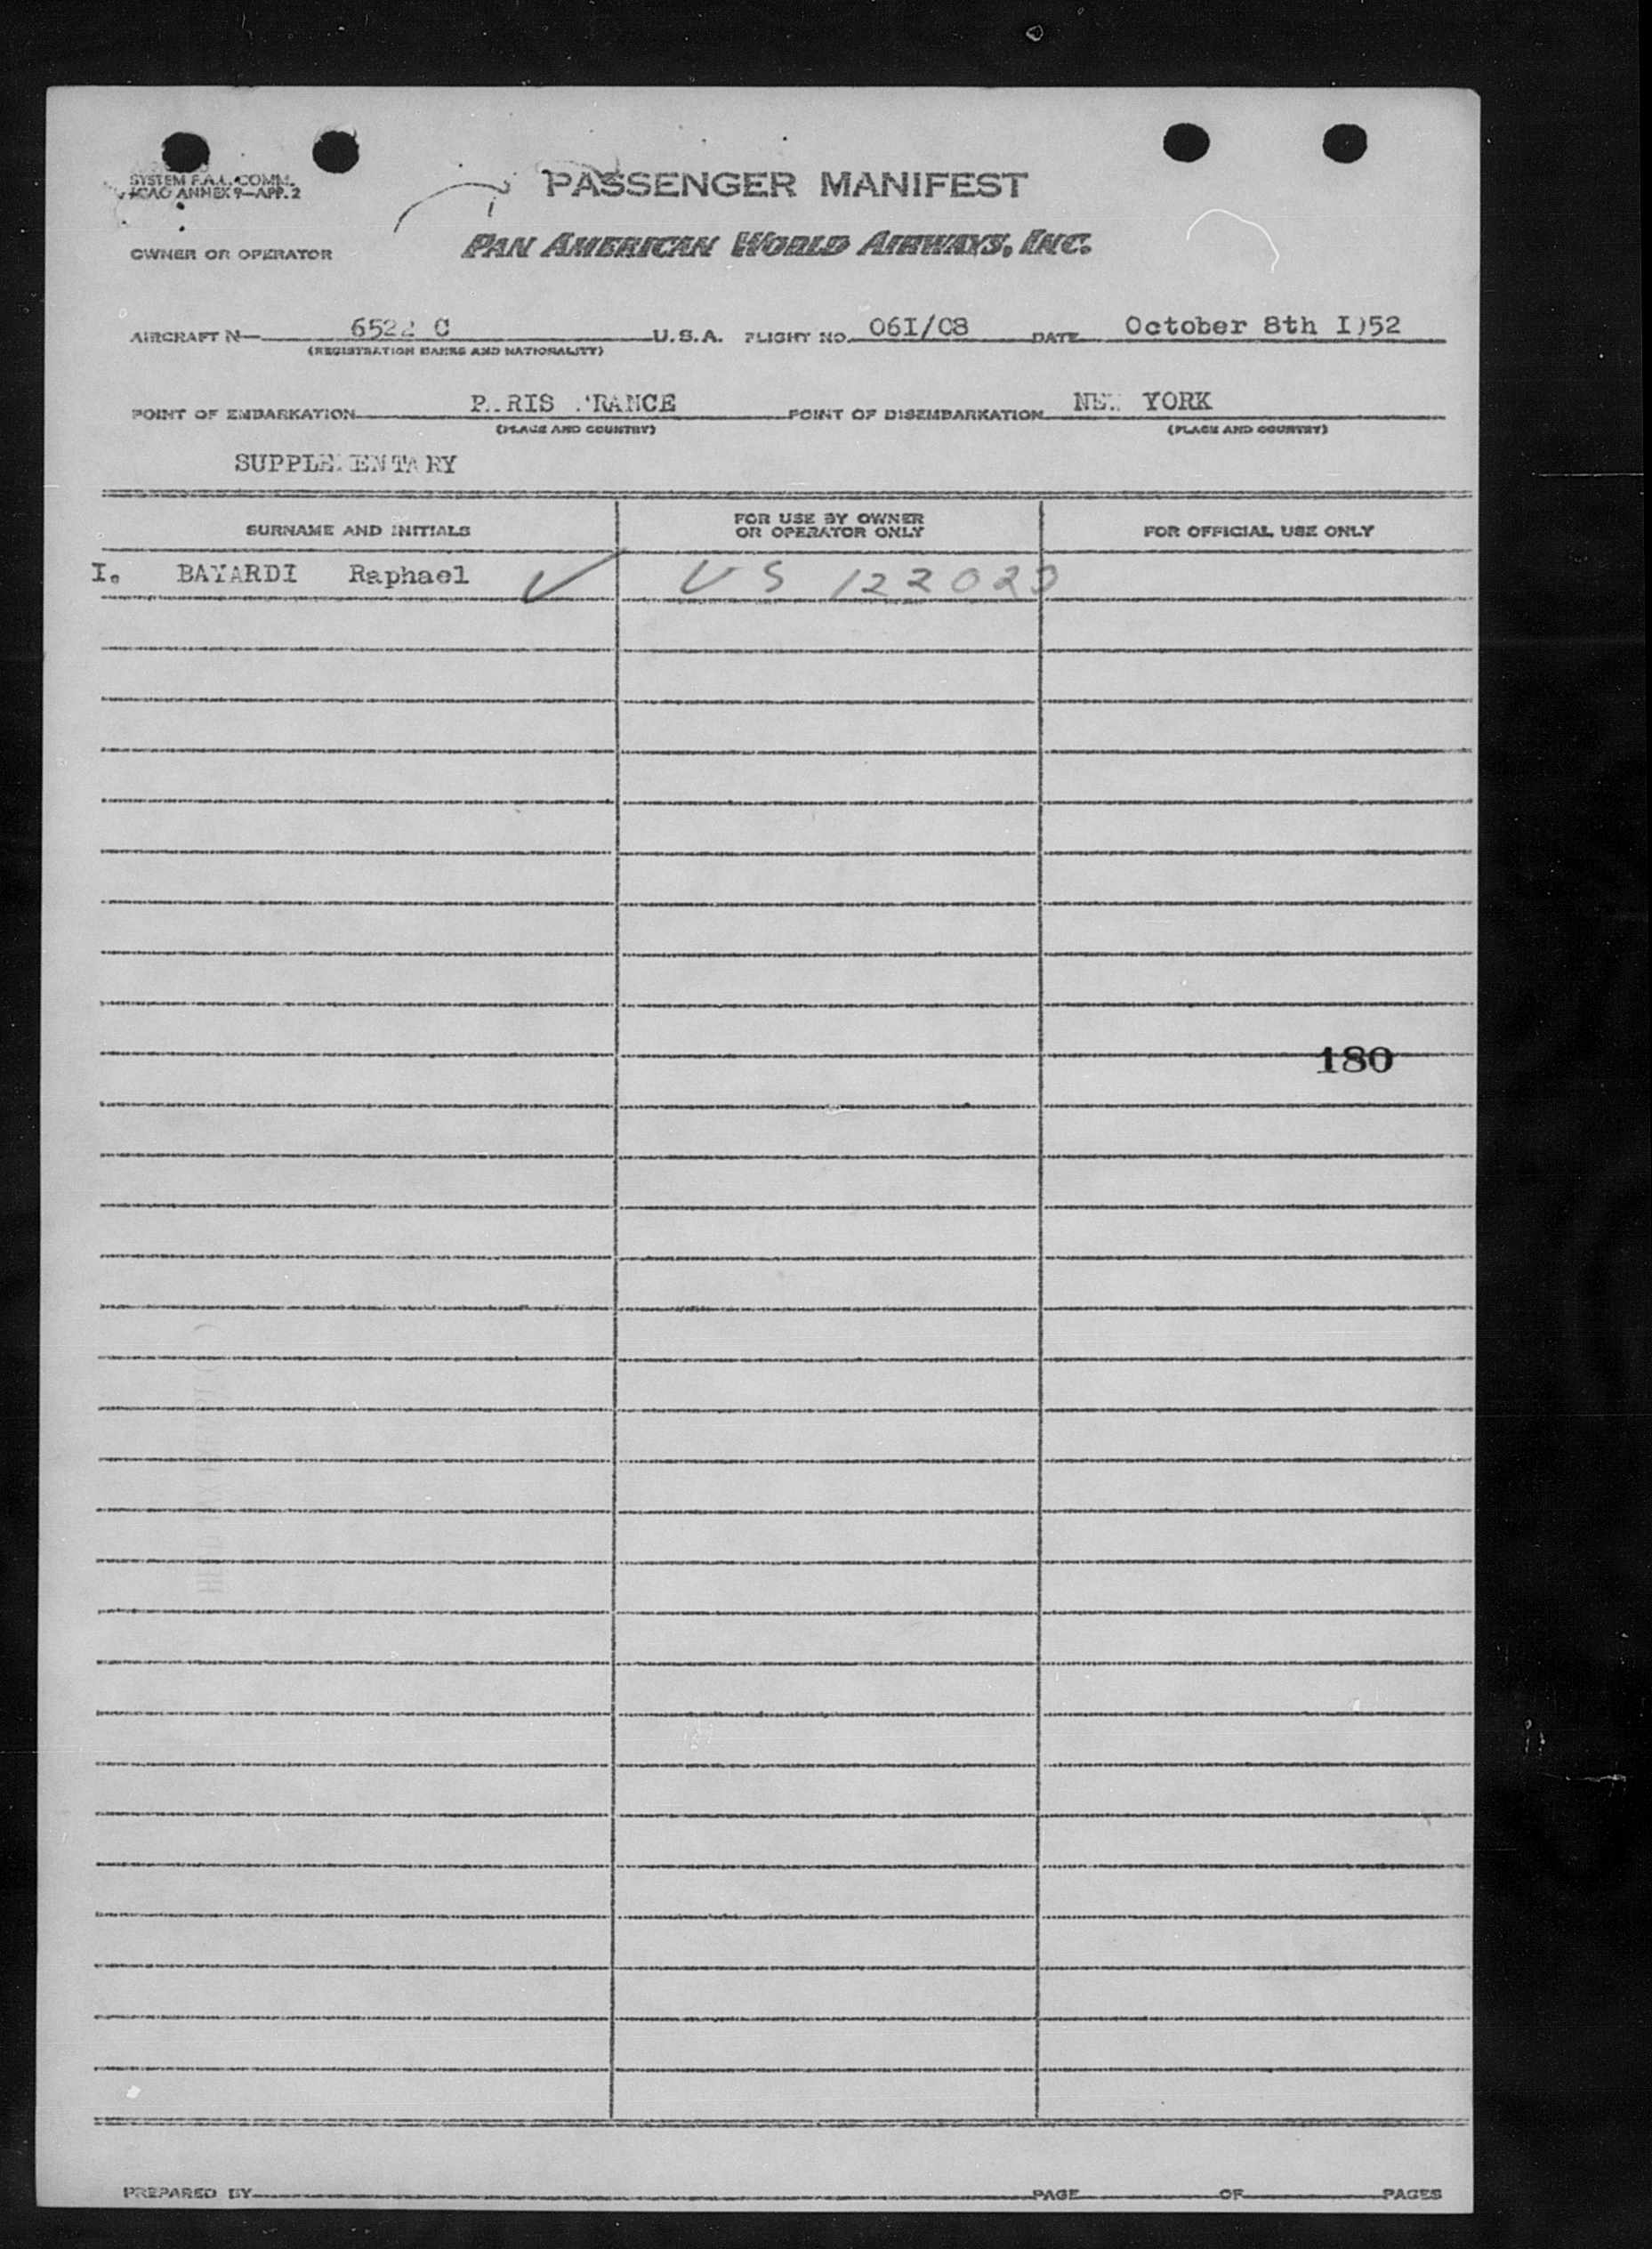 SYSTEM F.A.L. COMM.
ICAO ANNEX 9—APP. 2
PASSENGER MANIFEST
OWNER OR OPERATOR PAN AMERICAN WORLD AIRWAYS, INC.
AIRCRAFT N 6522 C U.S.A. FLIGHT NO. 06I/08 DATE October 8th I952
(REGISTRATION MARKS AND NATIONALITY)
POINT OF EMBARKATION PARIS FRANCE POINT OF DISEMBARKATION NEW YORK
(PLACE AND COUNTRY) (PLACE AND COUNTRY)
SUPPLEMENTARY
SURNAME AND INITIALS FOR USE BY OWNER OR OPERATOR ONLY FOR OFFICIAL USE ONLY
I. BAYARDI Raphael ✓ US 122023
180
PREPARED BY PAGE OF PAGES